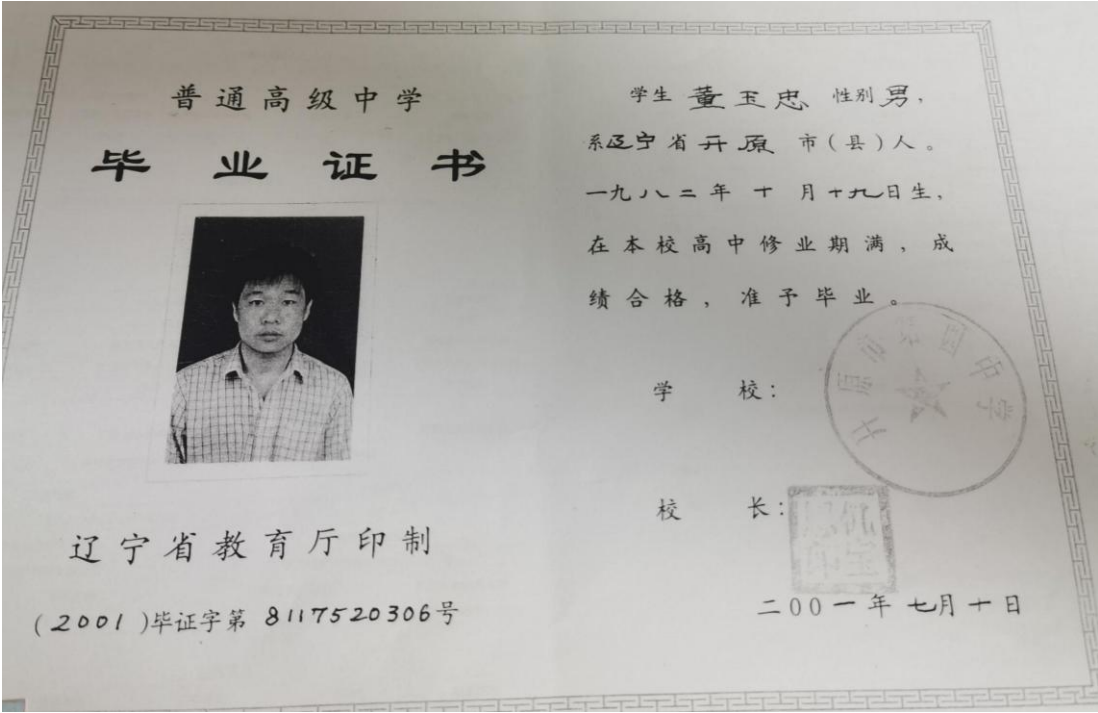 普通高级中学
毕业证书
辽宁省教育厅印制
(2001)毕证字第 8117520306号
学生 董玉忠 性别 男,
系辽宁省开原 市(县)人。
一九八二年 十 月十九日生,
在本校高中修业期满,成
绩合格,准予毕业。
学 校:
校 长:
二00一年 七月十日